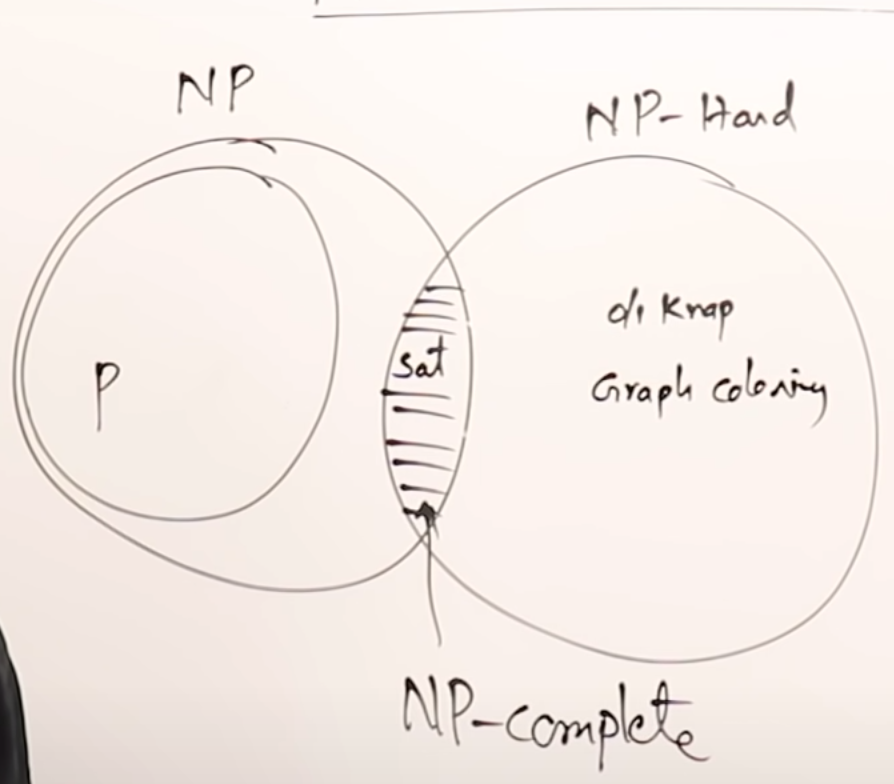 NP
NP-Hard
P
Sat
0/1 Knap
Graph coloring
NP-complete